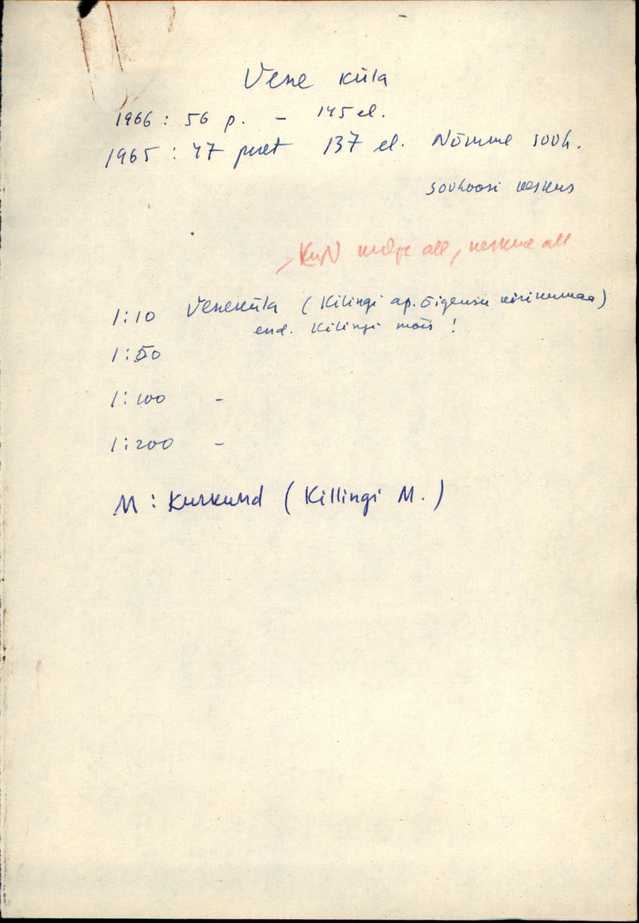 Vene küla
1966 : 56 p. - 145 el.
1965 : 47 peret 137 el. Nõmme sovh.
sovhoosi keskus
KuN mõlje all, keskuse all
1:10 Veneküla ( Kilingi ap. õigeusu kirikumaa )
end. Kilingi mõis !
1:50
1:100 -
1:200 -
M : Kurkund ( Killingi M. )